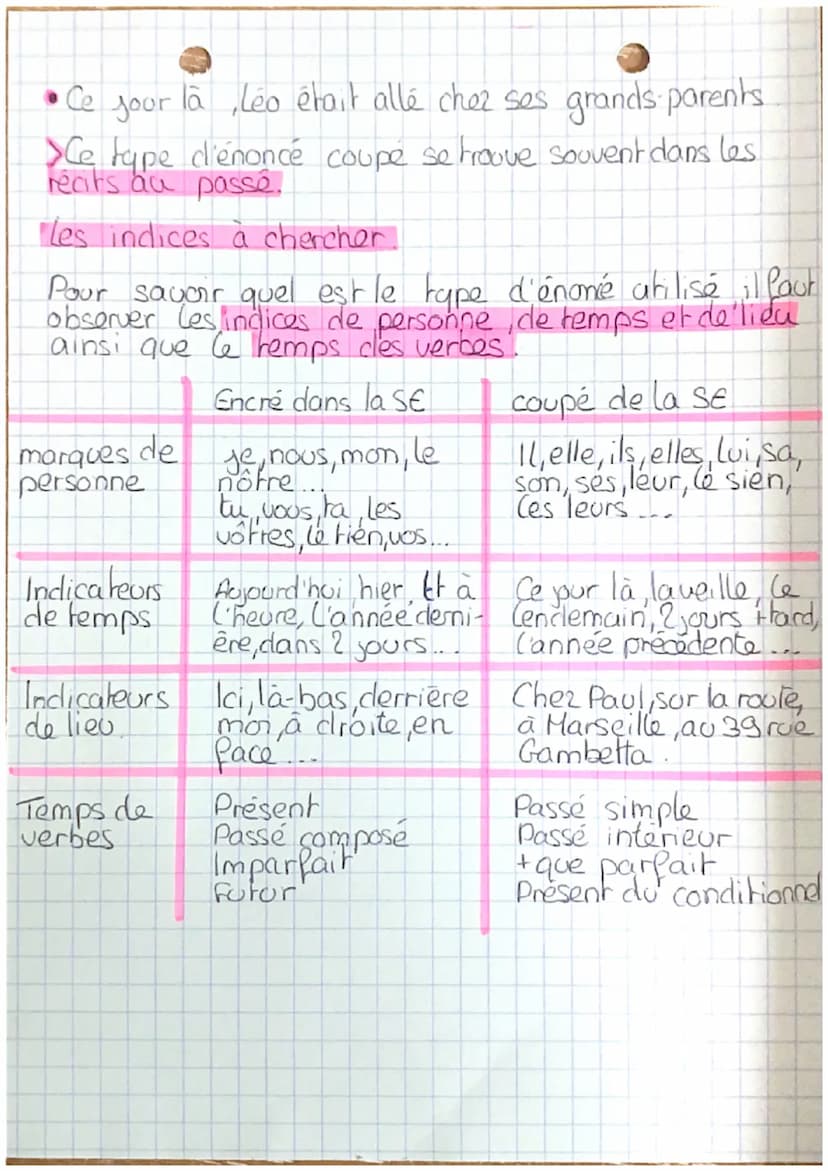 • Ce jour là , Léo était allé chez ses grands-parents
>Ce type d'énoncé coupé se trouve souvent dans les
récits au passé.
Les indices à chercher.
Pour savoir quel est le type d'énoné utilisé, il faut
observer les indices de personne, de temps et de lieu
ainsi que le temps des verbes.
Encré dans la SE
coupé de la SE
marques de
personne
je, nous, mon, le
nôtre...
tu, vous, ta, les
vôtres, le tien, vos...
Il, elle, ils, elles, lui, sa,
son, ses, leur, le sien,
les leurs ...
Indicateurs
de temps
Aujourd'hui, hier, tt à
l'heure, l'année derni-
ère, dans 2 jours...
Ce jour là, la veille, le
lendemain, 2 jours + tard,
l'année précédente ...
Indicateurs
de lieu
Ici, là-bas, derrière
moi, à droite, en
face ...
Chez Paul, sur la route,
à Marseille, au 39 rue
Gambetta.
Temps de
verbes
Présent
Passé composé
Imparfait
Futur
Passé simple
Passé intérieur
+ que parfait
Présent du conditionnel